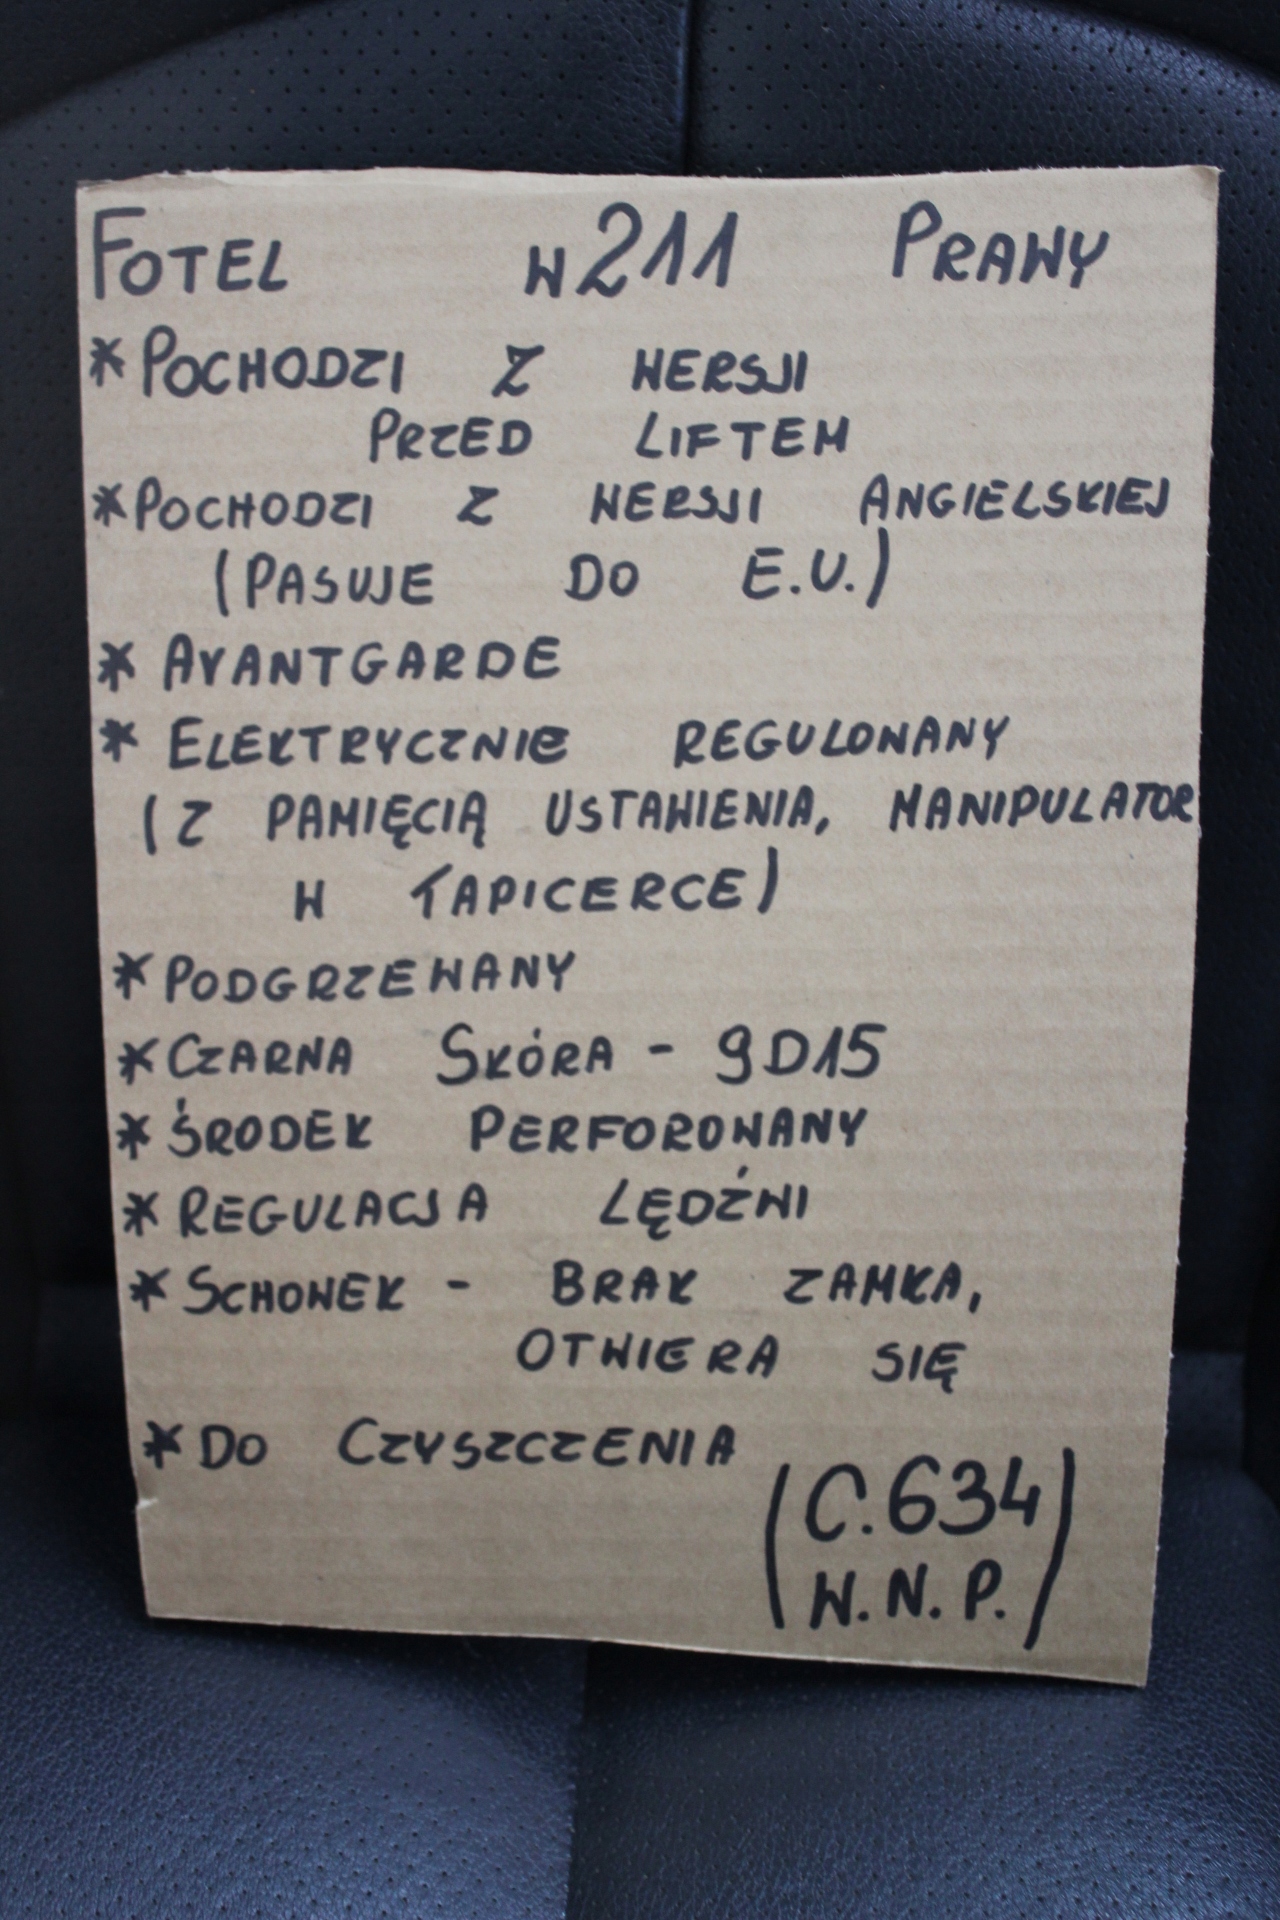 FOTEL W211 PRAWY
* POCHODZI Z WERSJI
PRZED LIFTEM
* POCHODZI Z WERSJI ANGIELSKIEJ
(PASUJE DO E.U.)
* AVANTGARDE
* ELEKTRYCZNIE REGULOWANY
(Z PAMIĘCIĄ USTAWIENIA, MANIPULATOR
W TAPICERCE)
* PODGRZEWANY
* CZARNA SKÓRA - 9D15
* ŚRODEK PERFOROWANY
* REGULACJA LĘDŹWI
* SCHOWEK - BRAK ZAMKA,
OTWIERA SIĘ
* DO CZYSZCZENIA
(C.634
W.N.P.)